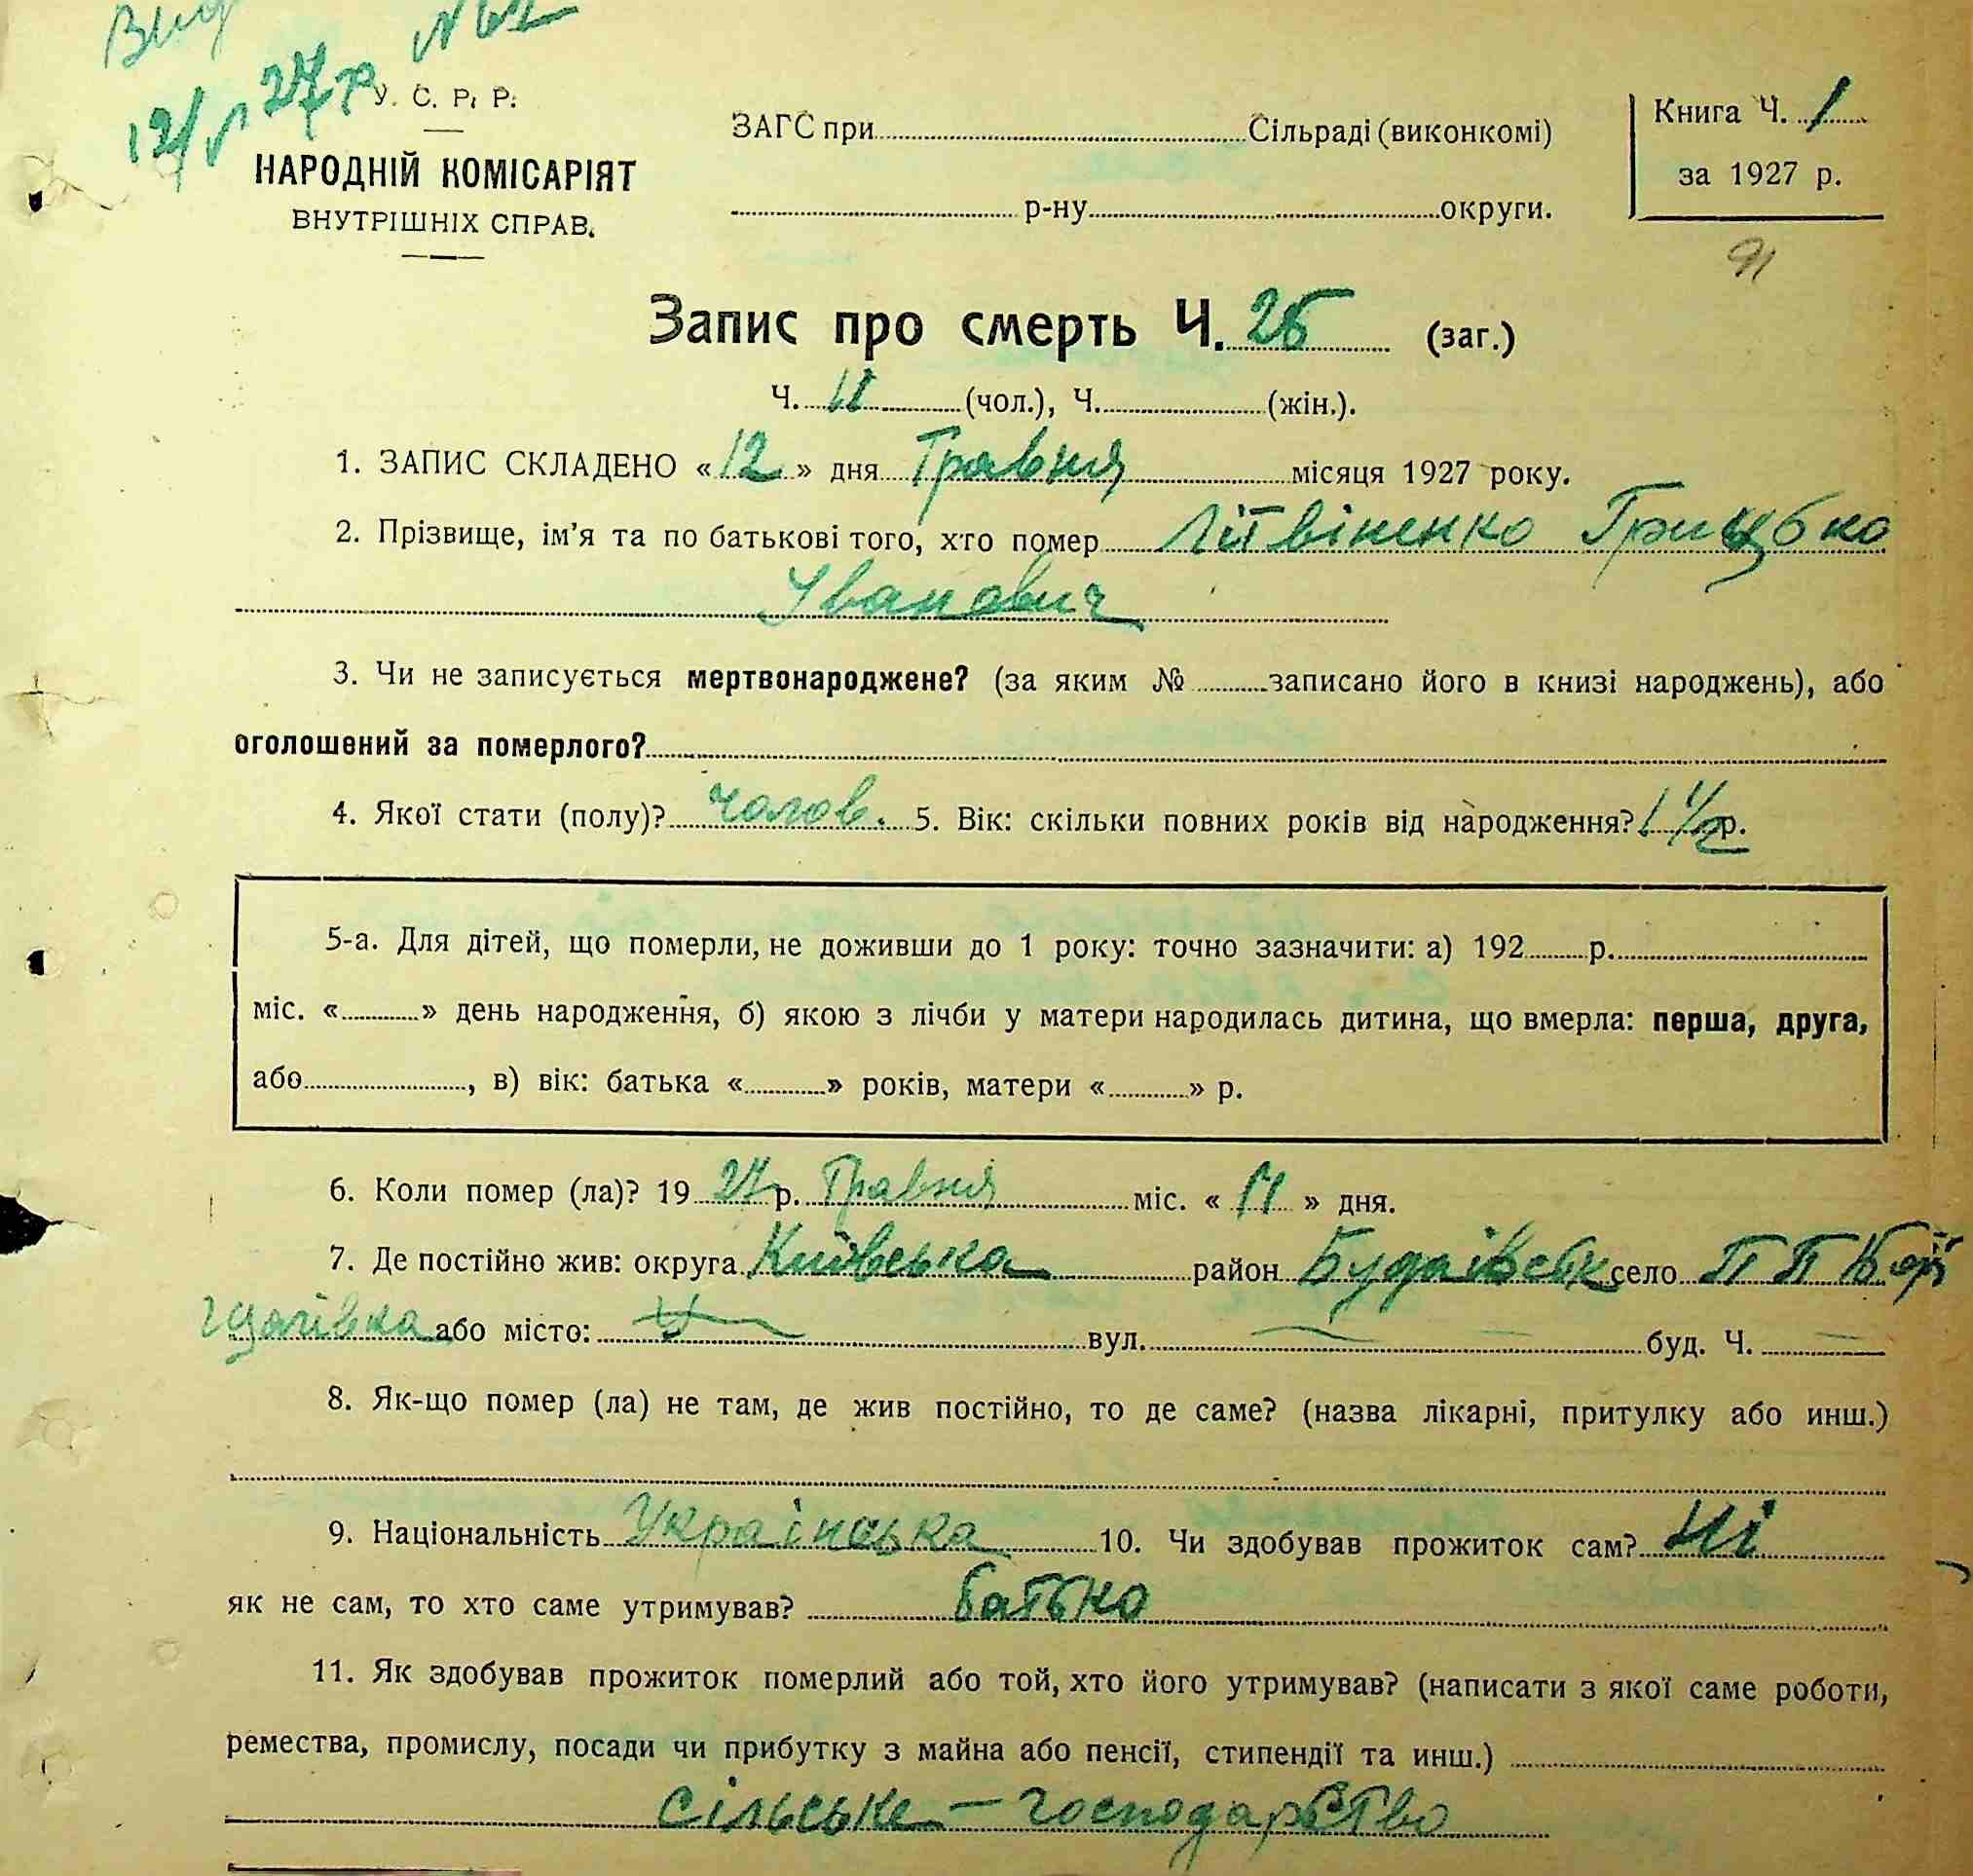 Вид № 62
12/V 27 р.
У. С. Р. Р.
НАРОДНІЙ КОМІСАРІЯТ
ВНУТРІШНІХ СПРАВ.
ЗАГС при Сільраді (виконкомі)
р-ну округи.
Книга Ч. 1
за 1927 р.
91
Запис про смерть Ч. 25 (заг.)
Ч. (чол.), Ч. (жін.).
1. ЗАПИС СКЛАДЕНО «12» дня Травня місяця 1927 року.
2. Прізвище, ім'я та по батькові того, хто помер Літвіненко
Іванович
3. Чи не записується мертвонароджене? (за яким № записано його в книзі народжень), або
оголошений за померлого?
4. Якої стати (полу)? чолов. 5. Вік: скільки повних років від народження? 1 1/2 р.
5-а. Для дітей, що померли, не доживши до 1 року: точно зазначити: а) 192 р.
міс. « » день народження, б) якою з лічби у матери народилась дитина, що вмерла: перша, друга,
або , в) вік: батька « » років, матери « » р.
6. Коли помер (ла)? 19 27 р. Травня міс. « 11 » дня.
7. Де постійно жив: округа Київська район Будаївськ село П П Борщ
гагівка або місто: — вул. — буд. Ч. —
8. Як-що помер (ла) не там, де жив постійно, то де саме? (назва лікарні, притулку або инш.)
9. Національність Українська 10. Чи здобував прожиток сам? Ні
як не сам, то хто саме утримував? батько
11. Як здобував прожиток померлий або той, хто його утримував? (написати з якої саме роботи,
ремества, промислу, посади чи прибутку з майна або пенсії, стипендії та инш.)
сільське - господарство